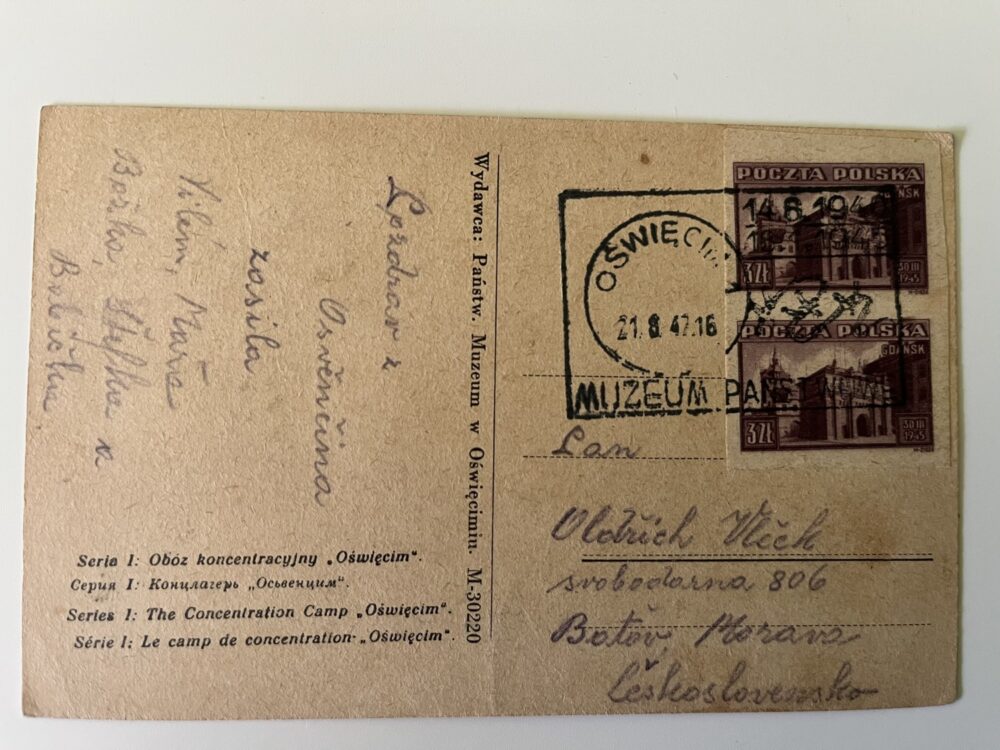 Pozdrav z
Osvěnčina
zasílá
Vilém, Máňa
Božka, Štefka a
Wydawca: Państw. Muzeum w Oświęcimiu. M-30220
Seria I: Obóz koncentracyjny „Oświęcim“.
Серия I: Концлагерь „Осьвенцим“.
Series I: The Concentration Camp „Oświęcim“.
Série I: Le camp de concentration „Oświęcim“.
POCZTA POLSKA
GDAŃSK
3 ZŁ
30 III
1945
POCZTA POLSKA
GDAŃSK
3 ZŁ
30 III
1945
14.6.1940
1945
OŚWIĘCIM
21.8.47.16
MUZEUM PAŃSTWOWE
Pan
Oldřich Vlček
svobodarna 806
Baťov, Morava
Československo